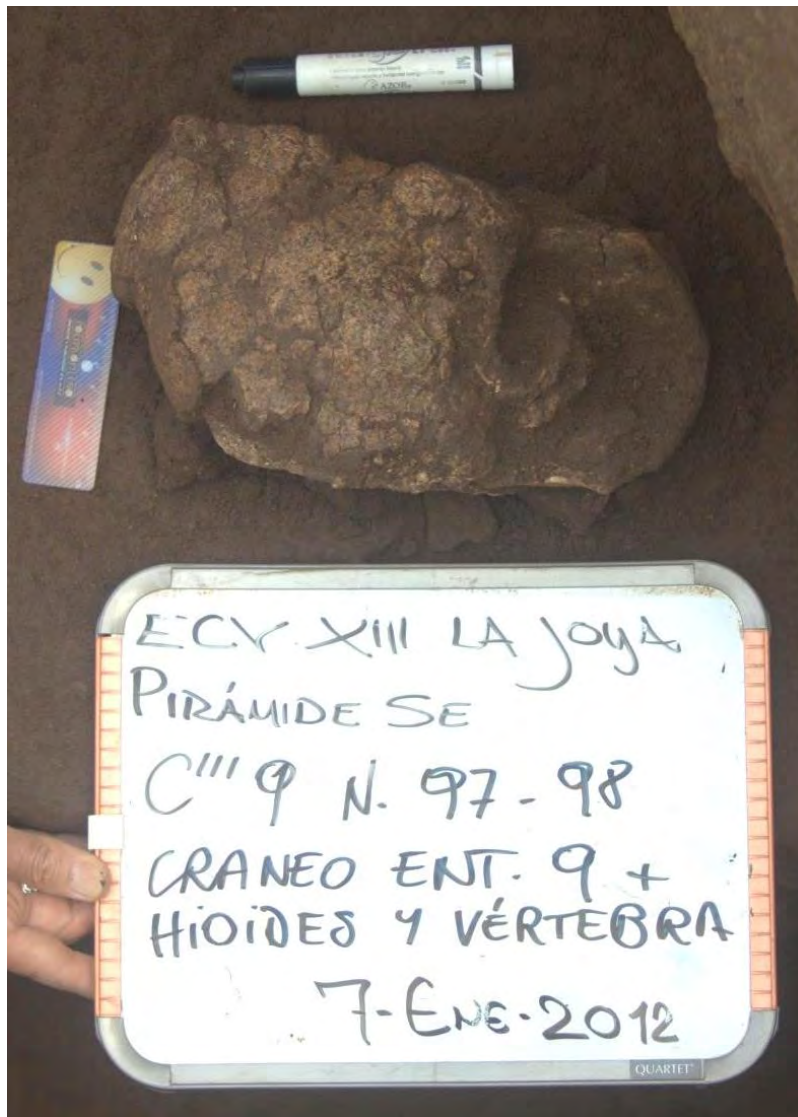 AZOR
ECV XIII LA JOYA
PIRÁMIDE SE
C''' 9 N. 97 - 98
CRANEO ENT. 9 +
HIOIDES Y VÉRTEBRA
7-ENE-2012
QUARTET